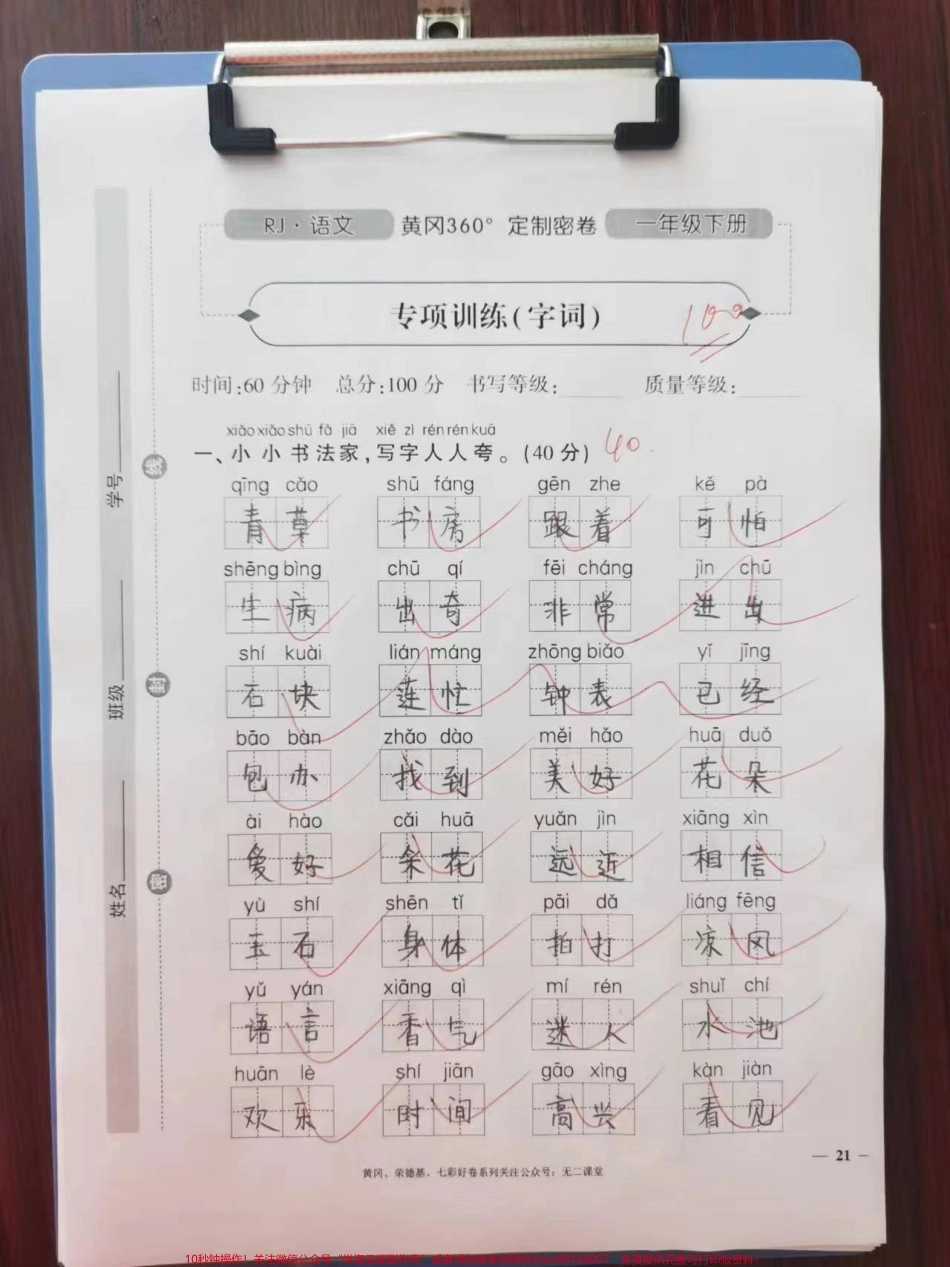 RJ·语文 黄冈360° 定制密卷 一年级下册
专项训练(字词)
100
时间:60分钟 总分:100分 书写等级:______ 质量等级:______
xiǎo xiǎo shū fǎ jiā xiě zì rén rén kuā
一、小小书法家,写字人人夸。(40分) 40
qīng cǎo shū fáng gēn zhe kě pà
青草 书房 跟着 可怕
shēng bìng chū qí fēi cháng jìn chū
生病 出奇 非常 进出
shí kuài lián máng zhōng biǎo yǐ jīng
石块 莲忙 钟表 已经
bāo bàn zhǎo dào měi hǎo huā duǒ
包办 找到 美好 花朵
ài hào cǎi huā yuǎn jìn xiāng xìn
爱好 采花 远近 相信
yù shí shēn tǐ pāi dǎ liáng fēng
玉石 身体 拍打 凉风
yǔ yán xiāng qì mí rén shuǐ chí
语言 香气 迷人 水池
huān lè shí jiān gāo xìng kàn jiàn
欢乐 时间 高兴 看见
— 21 —
黄冈、荣德基、七彩好卷系列关注公众号:无二课堂
学号
班级
姓名
线
封
密